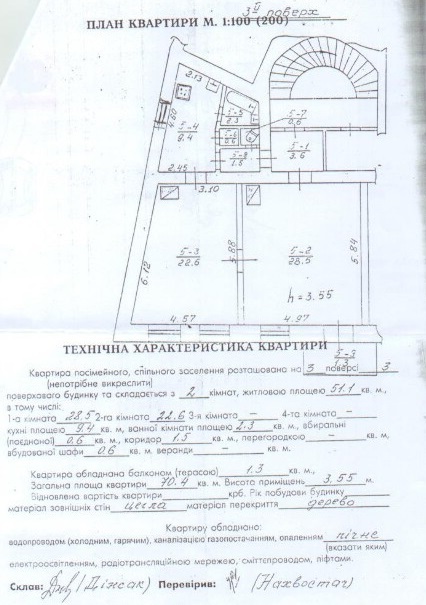 3й поверх
ПЛАН КВАРТИРИ М. 1:100 (200)
2.13
4.60
5-4
9.4
5-5
2.3
5-7
0.6
5-6
0.6
5-8
1.5
5-1
3.6
2.45
3.10
5-3
22.6
5.88
5-2
28.5
5.84
6.12
h = 3.55
4.57
4.97
1.3
ТЕХНІЧНА ХАРАКТЕРИСТИКА КВАРТИРИ
Квартира посімейного, спільного заселення розташована на 3 поверсі 3
(непотрібне викреслити)
поверхового будинку та складається з 2 кімнат, житловою площею 51.1 кв. м,
в тому числі:
1-а кімната 28.5 2-га кімната 22.6 3-я кімната – 4-та кімната –
кухні площею 9.4 кв. м, ванної кімнати площею 2.3 кв. м., вбиральні
(поєднаної) 0.6 кв. м., коридор 1.5 кв. м., перегородкою – кв. м,
вбудованої шафи 0.6 кв. м веранди – кв. м.
Квартира обладнана балконом (терасою) 1.3 кв. м.,
Загальна площа квартири 70.4 кв. м Висота приміщень 3.55 м.
Відновлена вартість квартири крб. Рік побудови будинку
матеріал зовнішніх стін цегла матеріал перекриття дерево
Квартиру обладнано:
водопроводом (холодним, гарячим), каналізацією газопостачанням, опаленням пічне
(вказати яким)
електроосвітленням, радіотрансляційною мережею, сміттєпроводом, ліфтами.
Склав: (Діжсак) Перевірив: (Нахвостач)